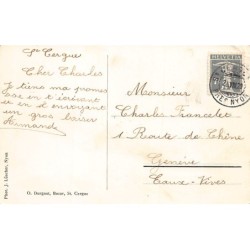 St Cergue
Cher Charles
Je tiens ma promesse
en t'écrivant
et en t'envoyant
un gros baiser
Armande
Monsieur
Charles Francelet
1 Route de Chêne
Genève
Eaux-Vives
HELVETIA
Phot. J. Läscher, Nyon
G. Hacquot, Bazar, St. Cergue